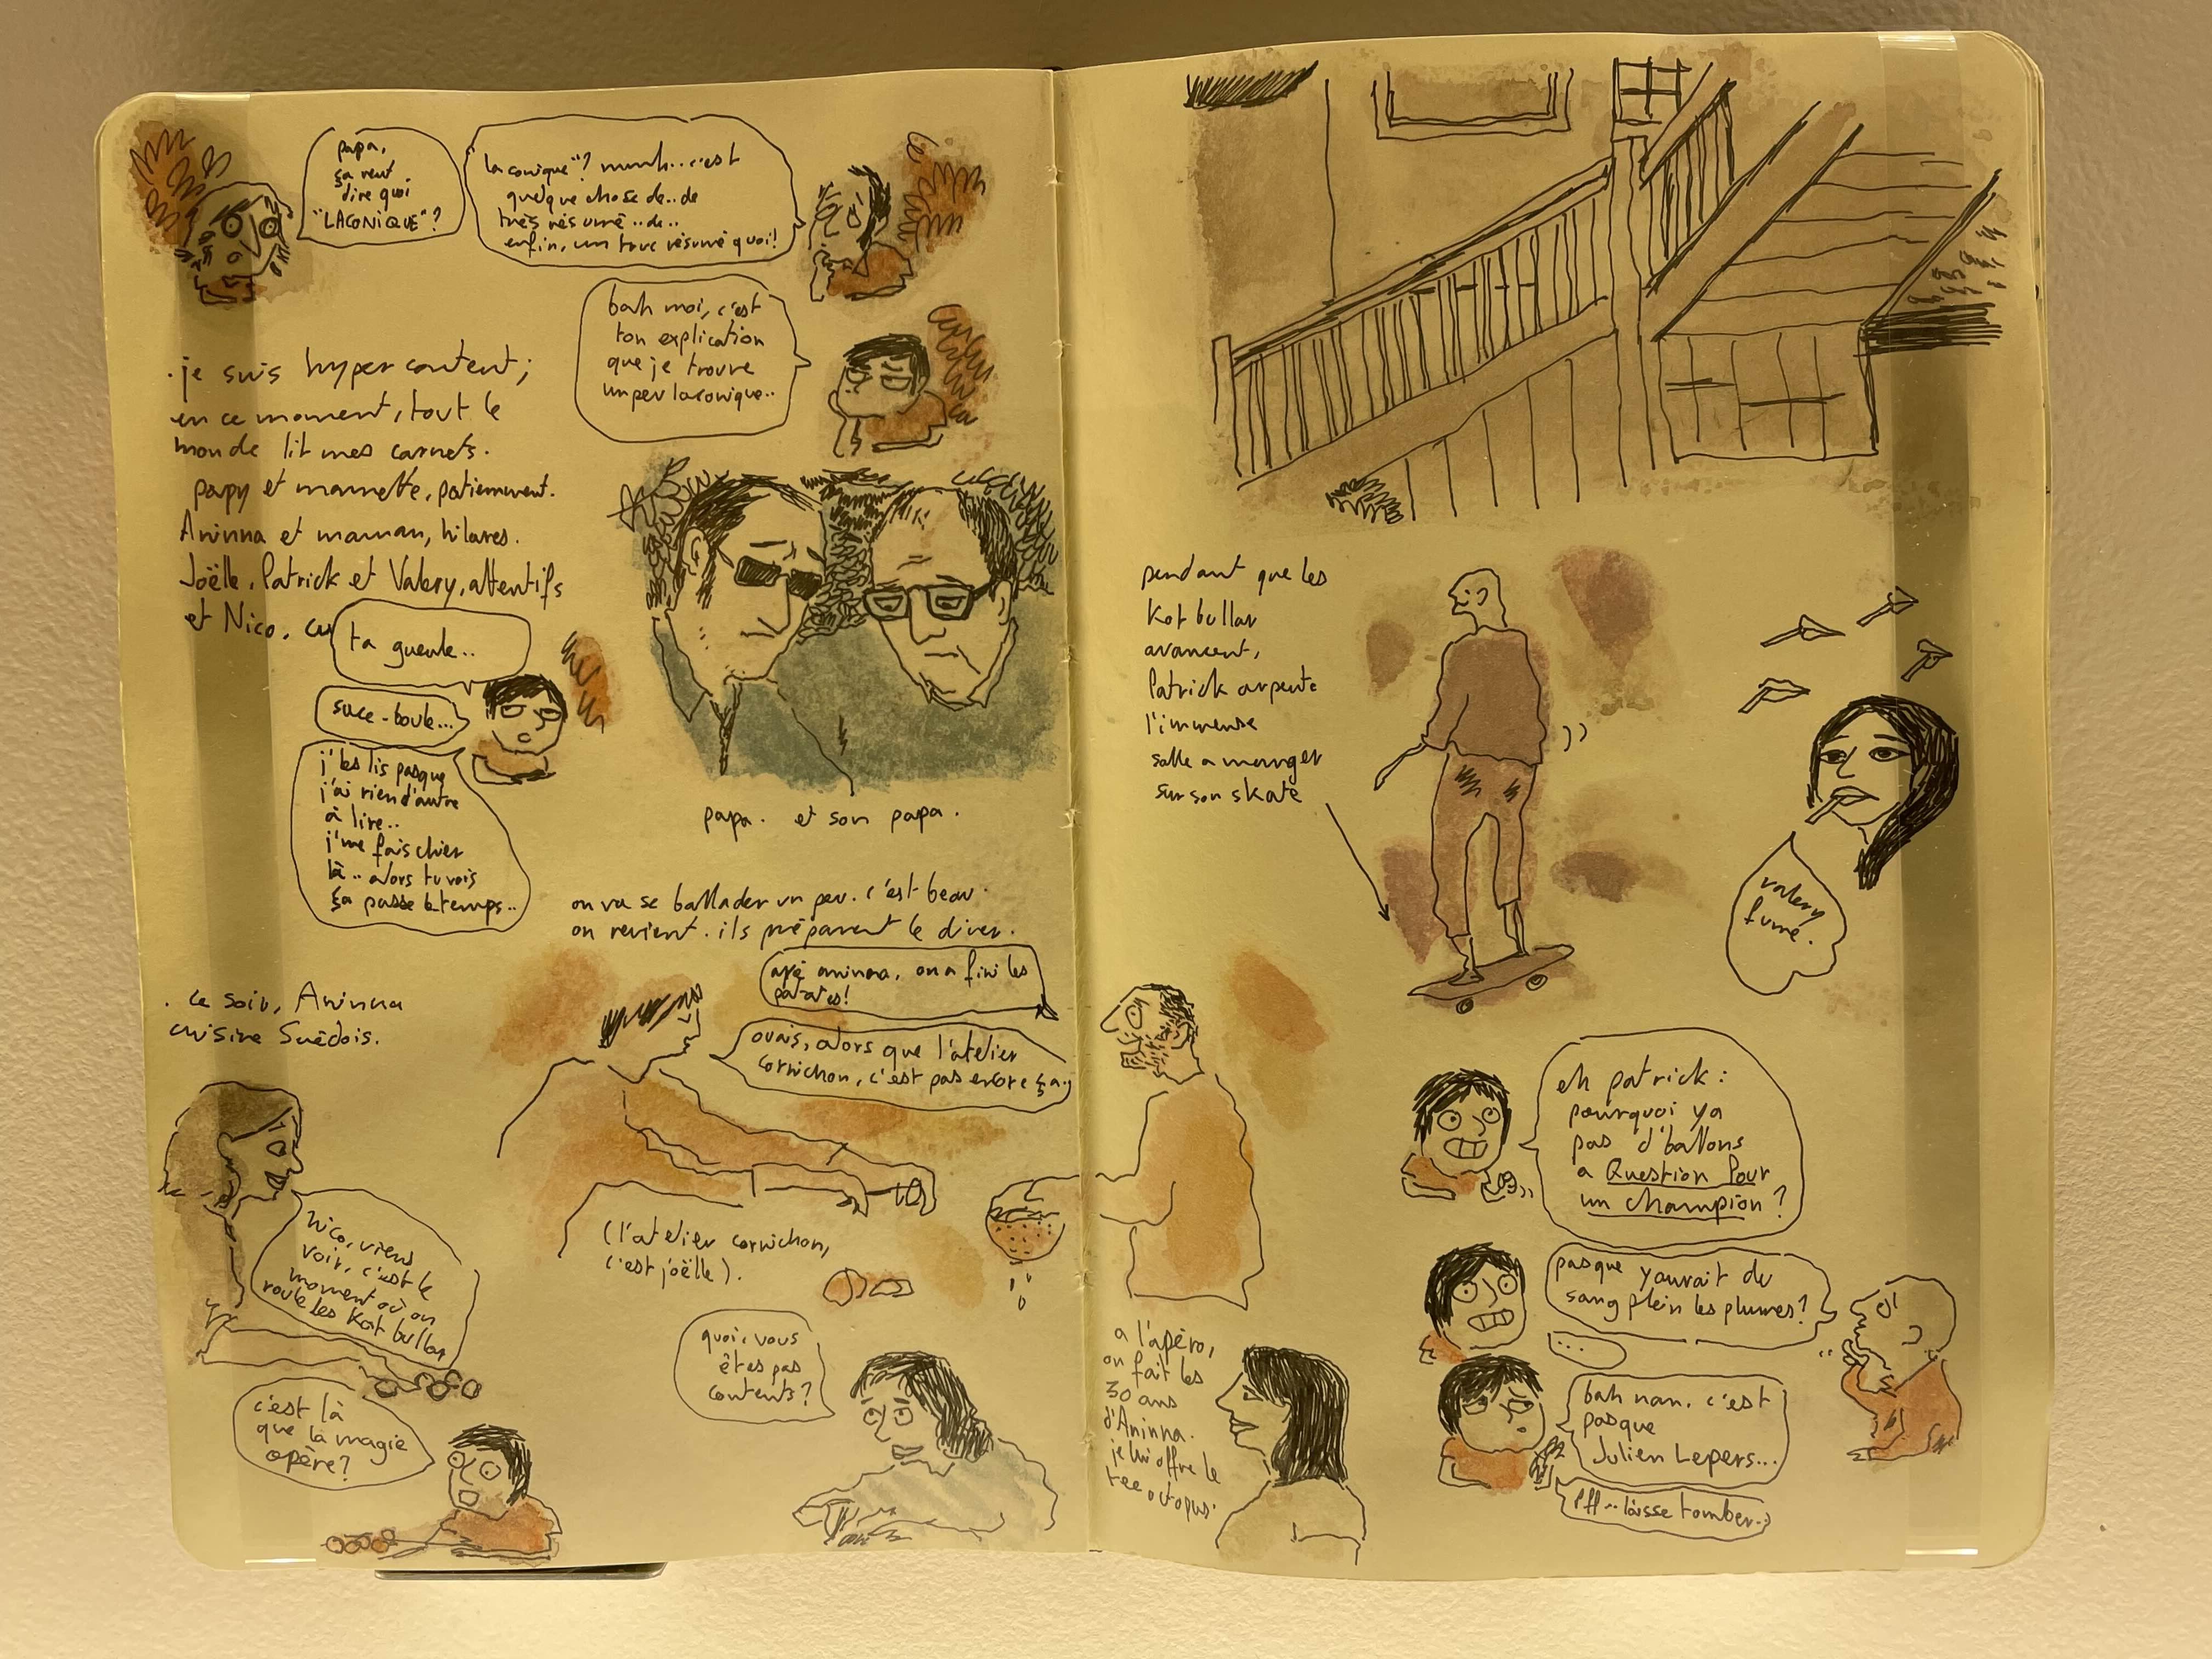 papa,
ça veut
dire quoi
"LACONIQUE"?
"laconique"? mmh..c'est
quelque chose de..de
très résumé..de..
enfin, un truc résumé quoi!
bah moi, c'est
ton explication
que je trouve
un peu laconique..
. je suis hyper content;
en ce moment, tout le
monde lit mes carnets.
papy et mamette, patiemment.
Aninna et maman, hilares.
Joëlle, Patrick et Valery, attentifs
et Nico, cu
ta gueule..
suce-boule...
j'les lis pasque
j'ai rien d'autre
à lire..
j'me fais chier
là.. alors tu vois
ça passe l'temps..
papa. et son papa.
on va se ballader un peu. c'est beau.
on revient. ils préparent le diner.
. ce soir, Aninna
cuisine Suédois.
ayé aninna, on a fini les
patates!
ouais, alors que l'atelier
cornichon, c'est pas encore ça..
(l'atelier cornichon,
c'est joëlle).
Nico, viens
voir, c'est le
moment où on
roule les Kot bullar
c'est là
que la magie
opère?
quoi, vous
êtes pas
contents?
pendant que les
Kot bullar
avancent,
Patrick arpente
l'immense
salle a manger
sur son skate
valery
fume.
a l'apéro,
on fait les
30 ans
d'Aninna.
je lui offre le
tee octopus.
eh patrick :
pourquoi ya
pas d'ballons
a Question Pour
un champion ?
pasque yaurait du
sang plein les plumes?
...
bah nan. c'est
pasque
Julien Lepers...
Pff.. laisse tomber..